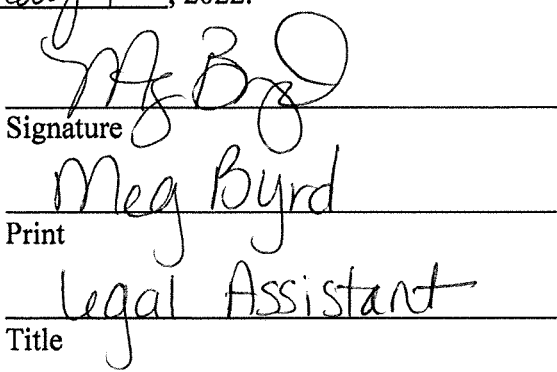 , 2022.
Meg Byrd
Signature
Meg Byrd
Print
Legal Assistant
Title